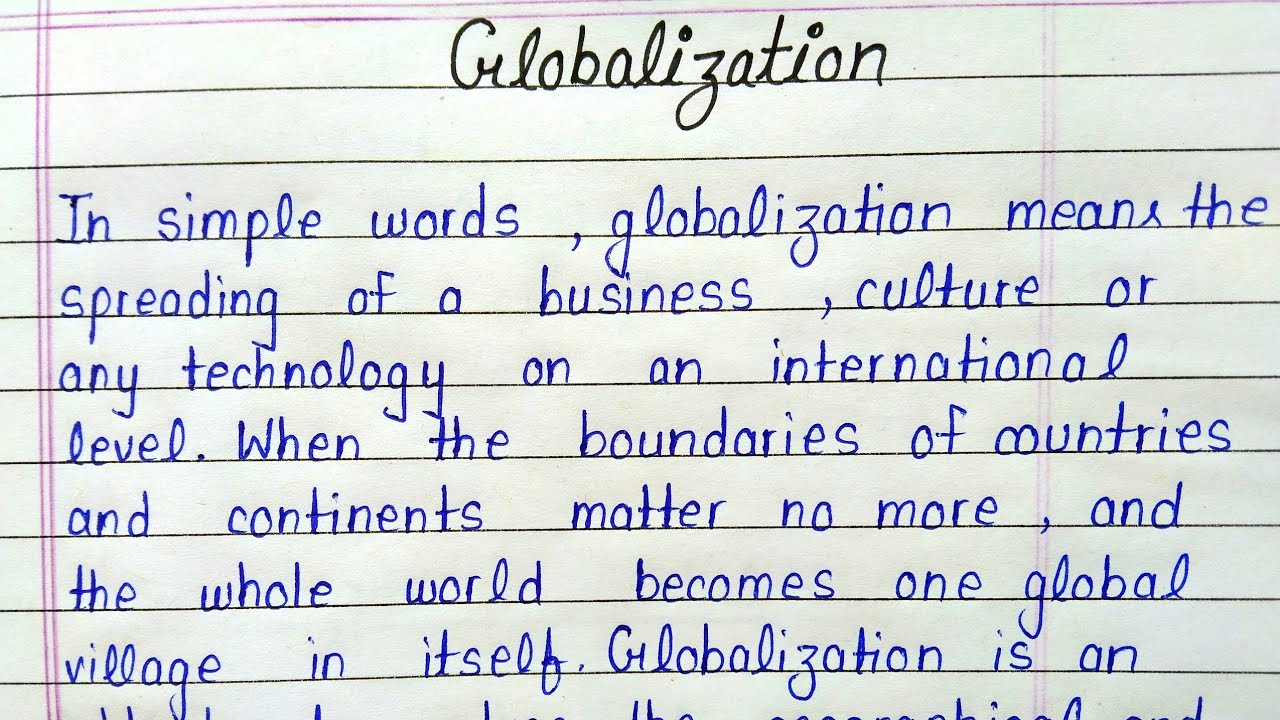 Globalization
In simple words , globalization means the
spreading of a business , culture or
any technology on an international
level. When the boundaries of countries
and continents matter no more , and
the whole world becomes one global
village in itself. Globalization is an
the geographical and